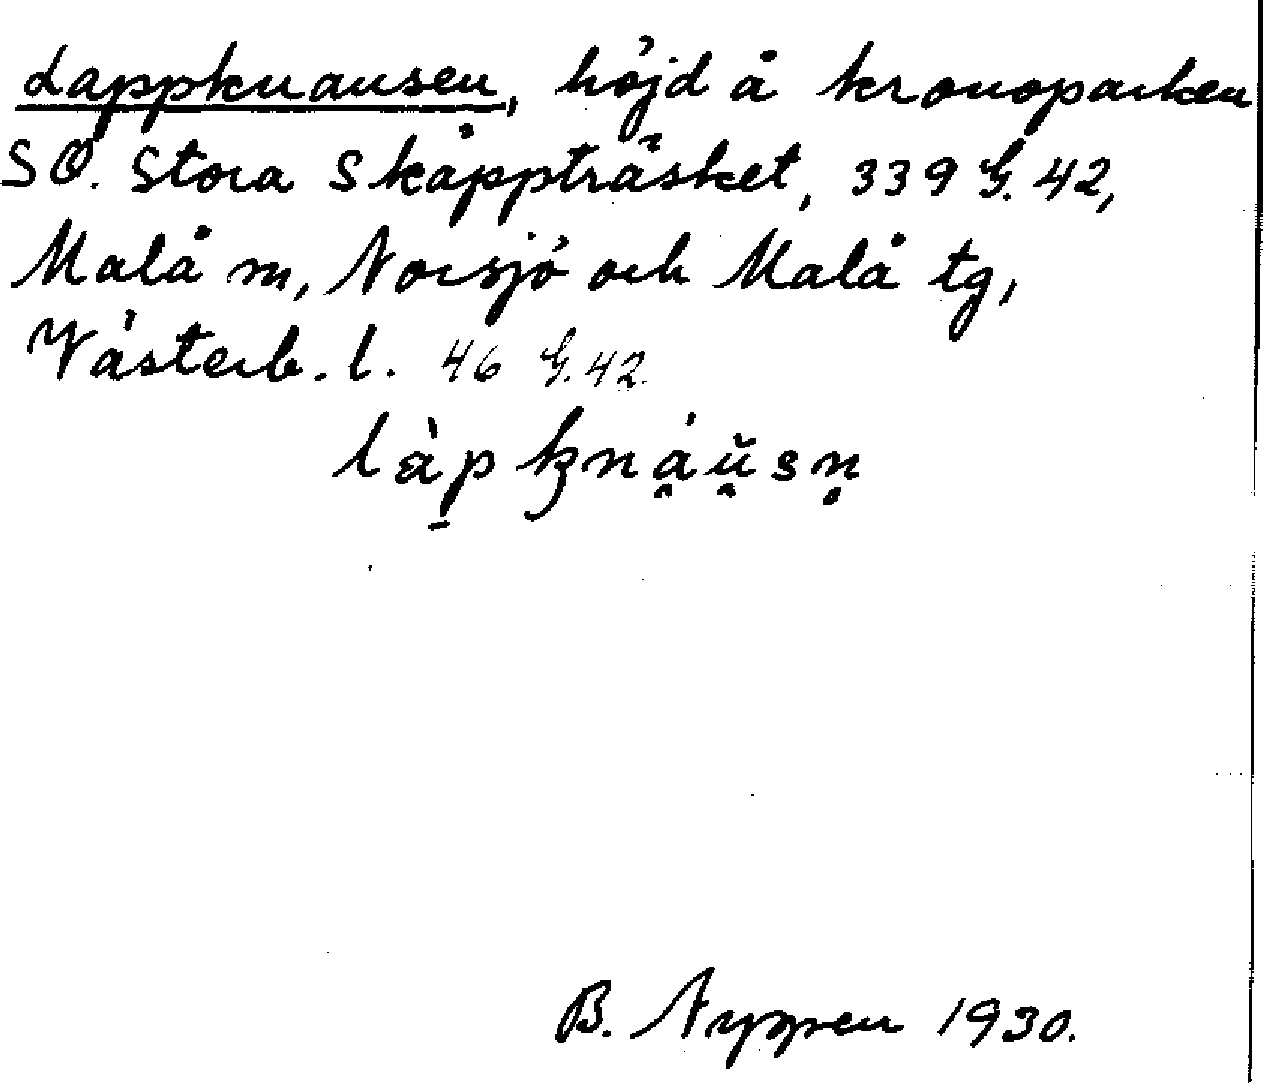 Lappknausen, höjd å kronoparken
SO. Stora Skäppträsket, 339 G. 42,
Malå m, Norsjö och Malå tg,
Västerb. l. 46 G. 42.
B. Nyppen 1930.